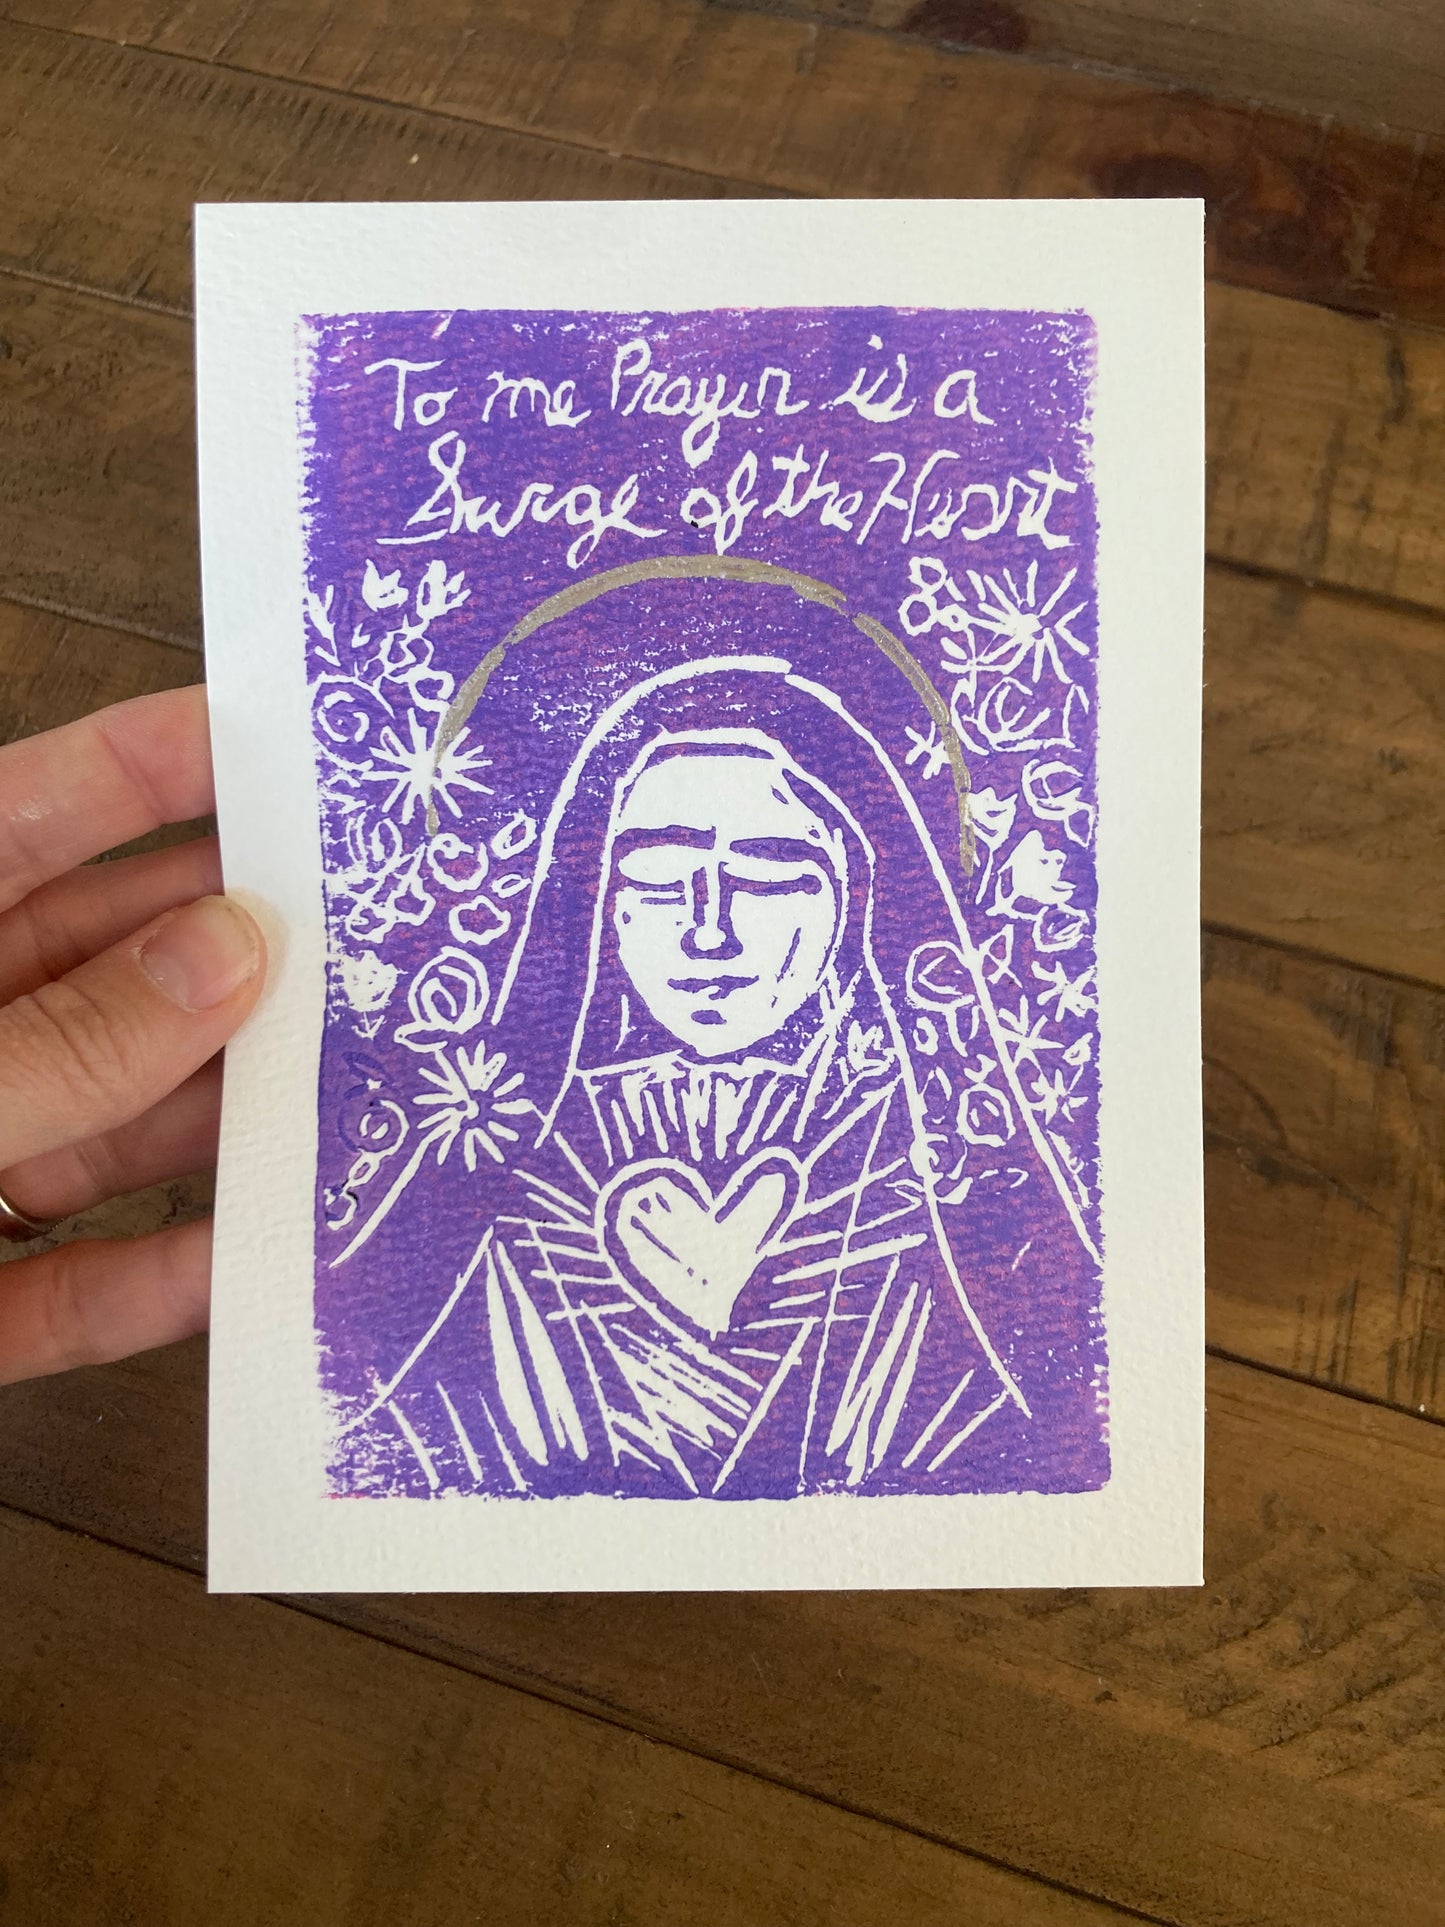 To me Prayer is a
Surge of the Heart